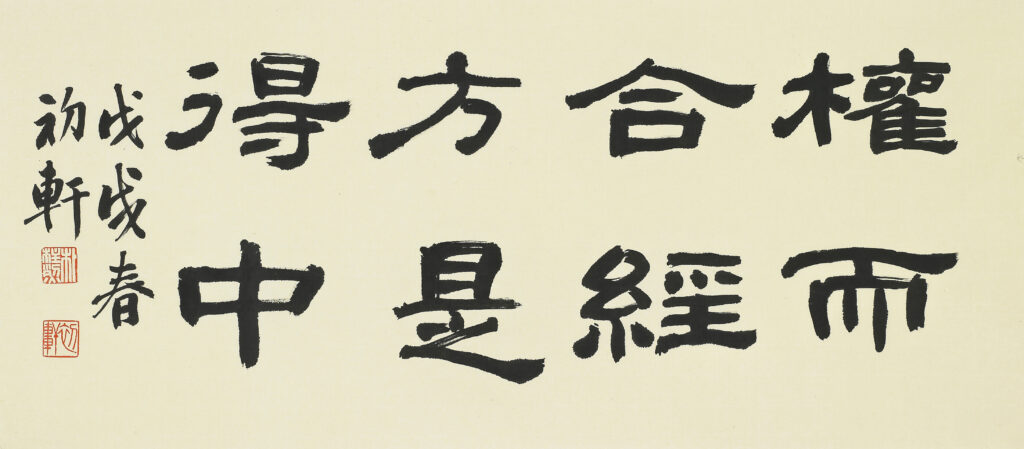 權而
合經
方是
得中
戊戌春
初軒
朴
初軒